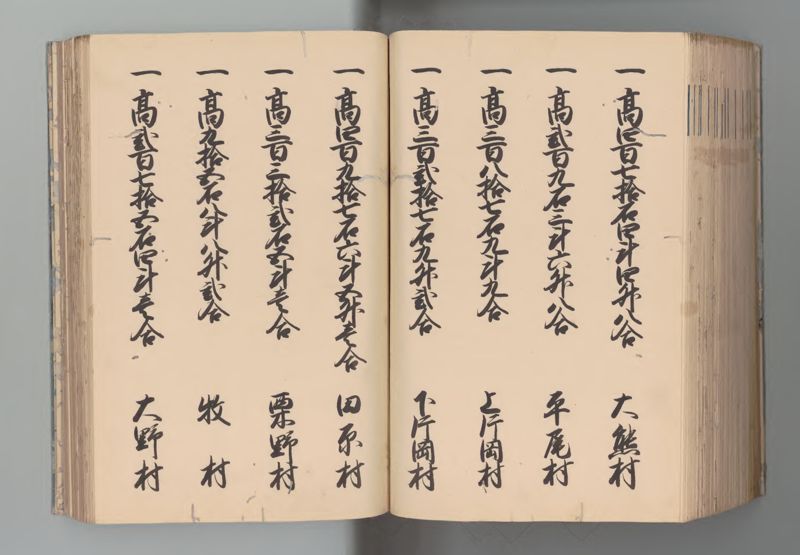 一 高四百七拾石四斗四升八合 大熊村
一 高弐百九石三斗六升八合 平尾村
一 高三百八拾七石九斗九合 上片岡村
一 高三百弐拾七石九升弐合 下片岡村
一 高四百九拾七石六斗五升壱合 田原村
一 高三百三拾弐石五斗壱合 栗野村
一 高九拾五石八斗八升弐合 牧村
一 高弐百七拾五石四斗壱合 大野村